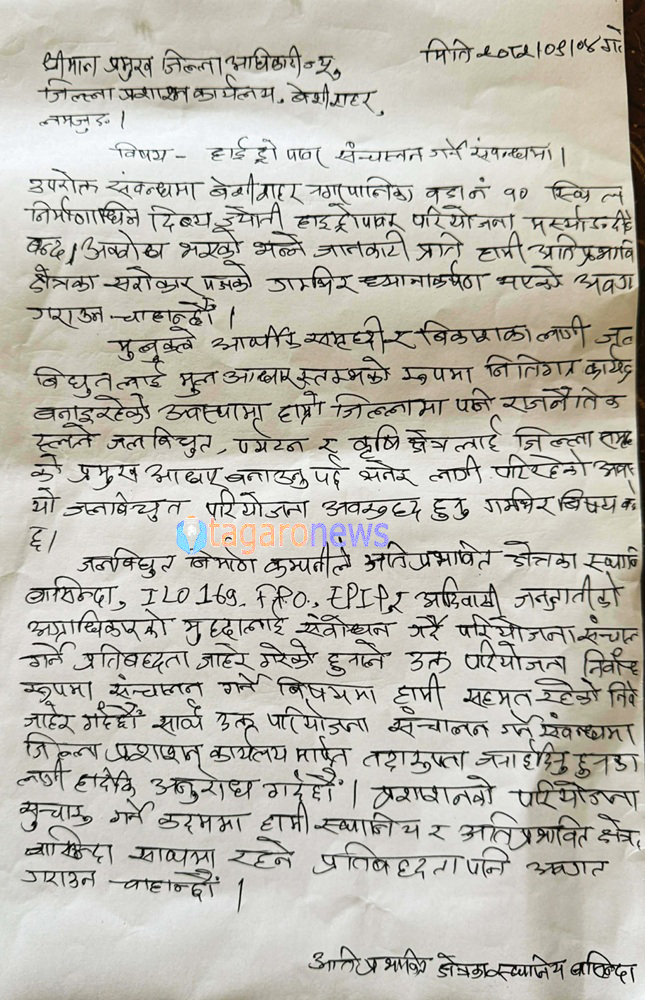 मिति २०८२।०९।०४ गते
श्रीमान प्रमुख जिल्ला अधिकारी ज्यू,
जिल्ला प्रशासन कार्यलय, बेशीशहर,
लमजुङ ।
विषय - हाईड्रो पावर संचालन गर्ने संवन्धमा ।
उपरोक्त संवन्धमा बेशीशहर नगरपालिका वडा नं १० स्थित
निर्माणाधिन दिव्य ज्योती हाइड्रोपावर परियोजना मर्स्याङ्दी
बन्द/अवरोध भएको भन्ने जानकारी प्रति हामी अति प्रभावित
क्षेत्रका सरोकार पक्षको गम्भिर ध्यानाकर्षण भएको अवगत
गराउन चाहान्छौं ।
मुलुकले आर्थिक समृद्धी र विकासका लागी जल
विधुतलाई मुल आधार स्तम्भको रूपमा नितिगत कार्यक्रम
बनाइरहेको अवस्थामा हाम्रो जिल्लामा पनि राजनैतिक
स्तरले जलविधुत, पर्यटन र कृषि क्षेत्रलाई जिल्ला समृद्धि
को प्रमुख आधार बनाउनु पर्छ भनेर लागी परिरहेको अवस्था
यो जलविधुत परियोजना अवरुद्ध हुनु गम्भिर विषय
छ ।
tagaronews
जलविधुत निर्माण कम्पनीले अति प्रभावित क्षेत्रका स्थानिय
बासिन्दा, ILO 169, FPO., EPIP र आदिवासी जनजातीको
अग्राधिकारको मुद्दालाई संवोधन गर्दै परियोजना संचालन
गर्ने प्रतिबद्दता जाहेर गरेको हुनाले उक्त परियोजना निर्वाध
रूपमा संचालन गर्ने विषयमा हामी सहमत रहेको निवेदन
जाहेर गर्दछौं साथै उक्त परियोजना संचालन गर्ने संवन्धमा
जिल्ला प्रशासन कार्यलय मार्फत तदारुकता जनाईदिनु हुनका
लागी हार्दिक अनुरोध गर्दछौं । प्रशासनको परियोजना
सुचारु गर्ने कदममा हामी स्थानिय र अति प्रभावित क्षेत्रका
बासिन्दा साथमा रहने प्रतिबद्दता पनि अवगत
गराउन चाहान्छौं ।
अति प्रभावित क्षेत्रका स्थानिय बासिन्दा